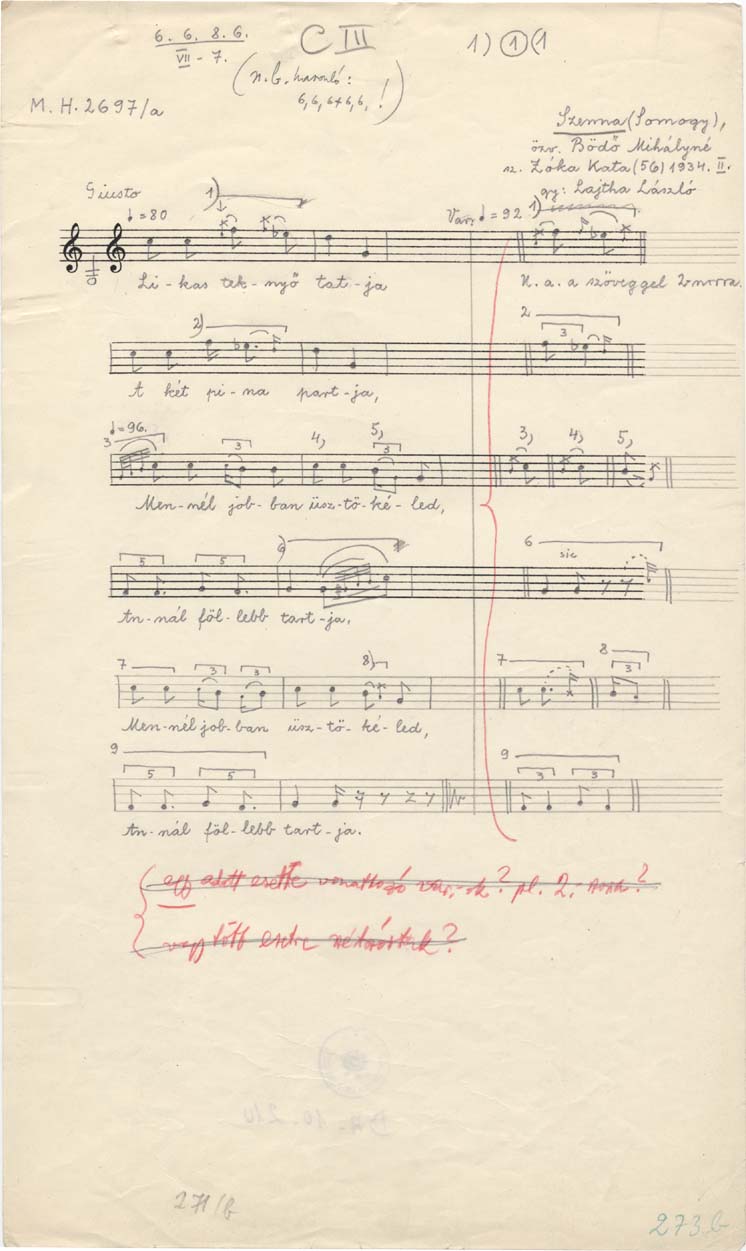 6. 6. 8. 6.
VII - 7.
C III
1) ① (1
(n.b. hasonló:
6,6,6+6,6,!)
M. H. 2697/a
Szenna (Somogy),
özv. Bödő Mihályné
sz. Zóka Kata (56) 1934. II.
gy: Lajtha László
Giusto
♩=80
1)
Var: ♩=92
1)
Li-kas tek-nyő tat-ja
U. a. a szöveggel
2)
2
3
A két pi-na part-ja,
♩=96.
3
3
4)
5)
3
3)
4)
5)
Men-nél job-ban üsz-tö-ké-led,
5
5
6)
6
sic
An-nál föl-lebb tart-ja,
7
3
3
8)
7
8
3
Men-nél job-ban üsz-tö-ké-led,
9
5
5
9
3
3
An-nál föl-lebb tart-ja.
egy adott esetre vonatkozó var.-ok? pl. 2.-
vagy több esetre
271/b
273b